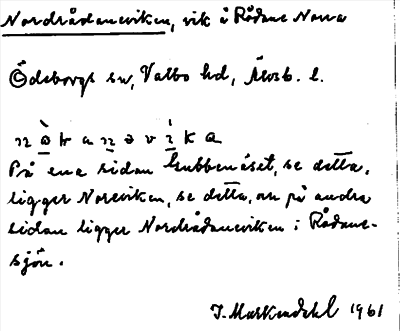 Nordrådaneviken, vik å Rådane Norra
Ödeborgs sn, Valbo hd, Älvsb. l.
På ena sidan Gubbenäset, se detta,
ligger Noreviken, se detta, on på andra
sidan ligger Nordrådaneviken i Rådane-
sjön.
1961